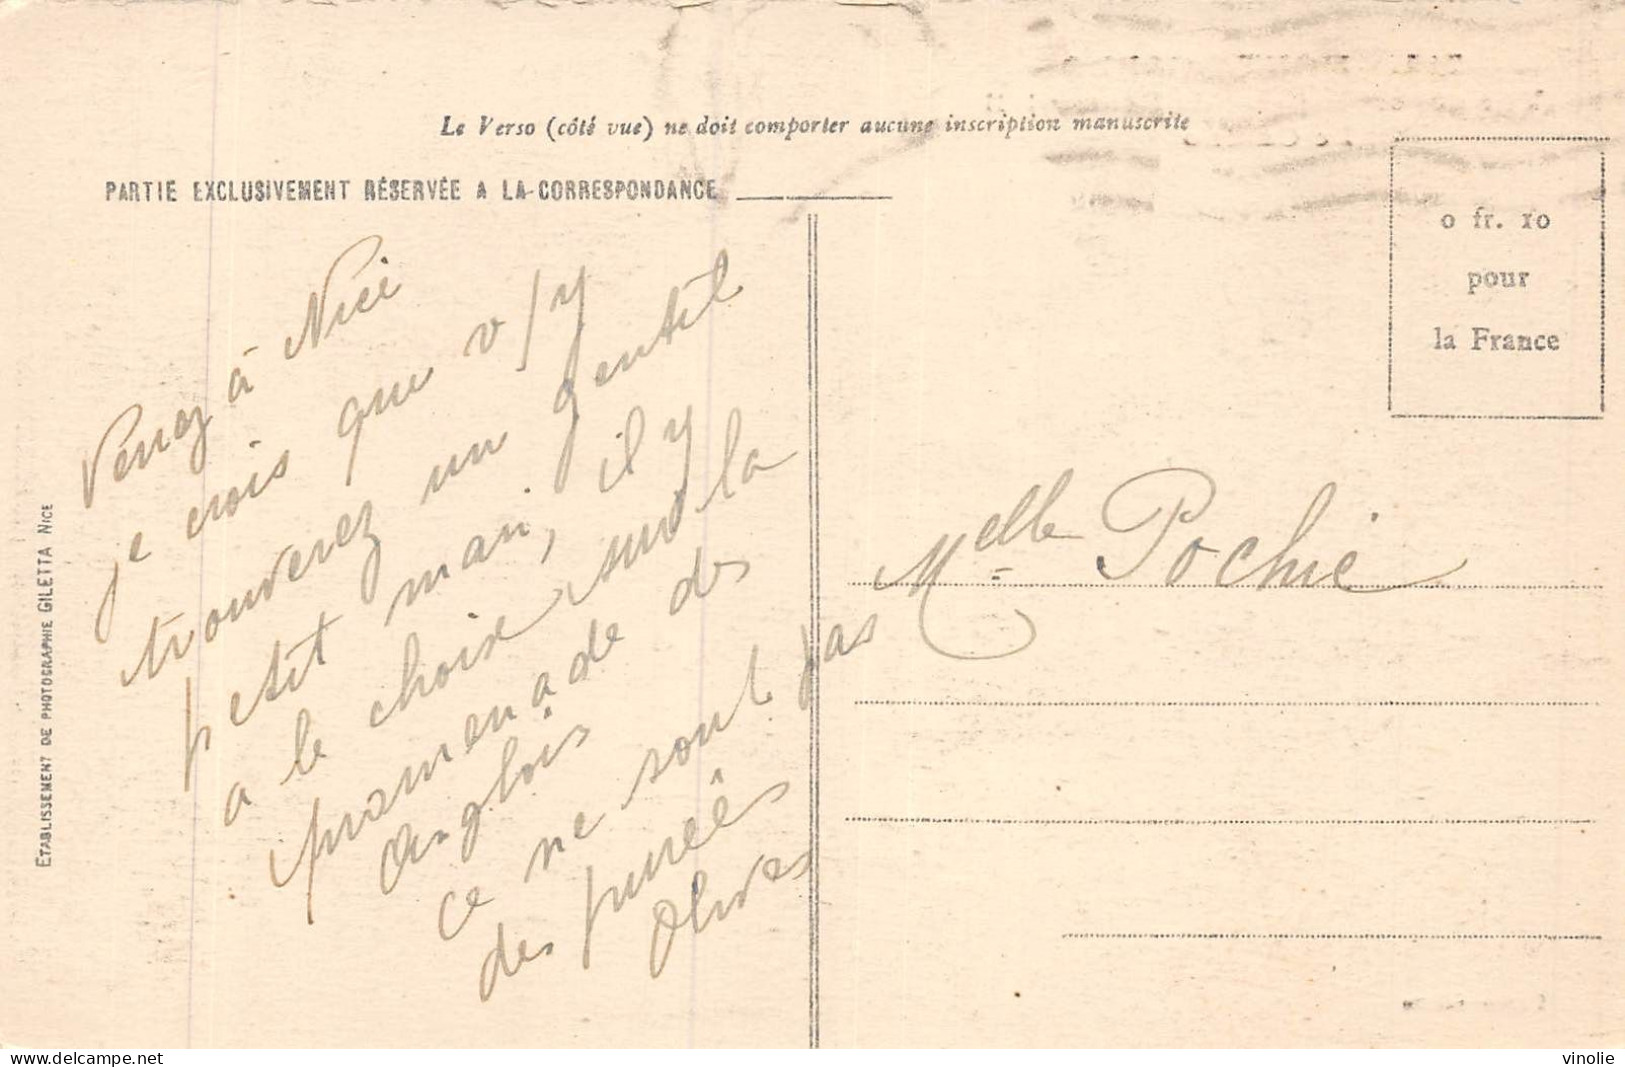 Le Verso (côté vue) ne doit comporter aucune inscription manuscrite
PARTIE EXCLUSIVEMENT RÉSERVÉE A LA CORRESPONDANCE
0 fr. 10
pour
la France
Venez à Nice
je crois que v/y
trouverez un gentil
petit mari, il y
a le choix sur la
promenade des
Anglais
ce ne sont pas
des purées
Olives
Melle Pochie
ETABLISSEMENT DE PHOTOGRAPHIE GILETTA NICE
delcampe.net
vinolie